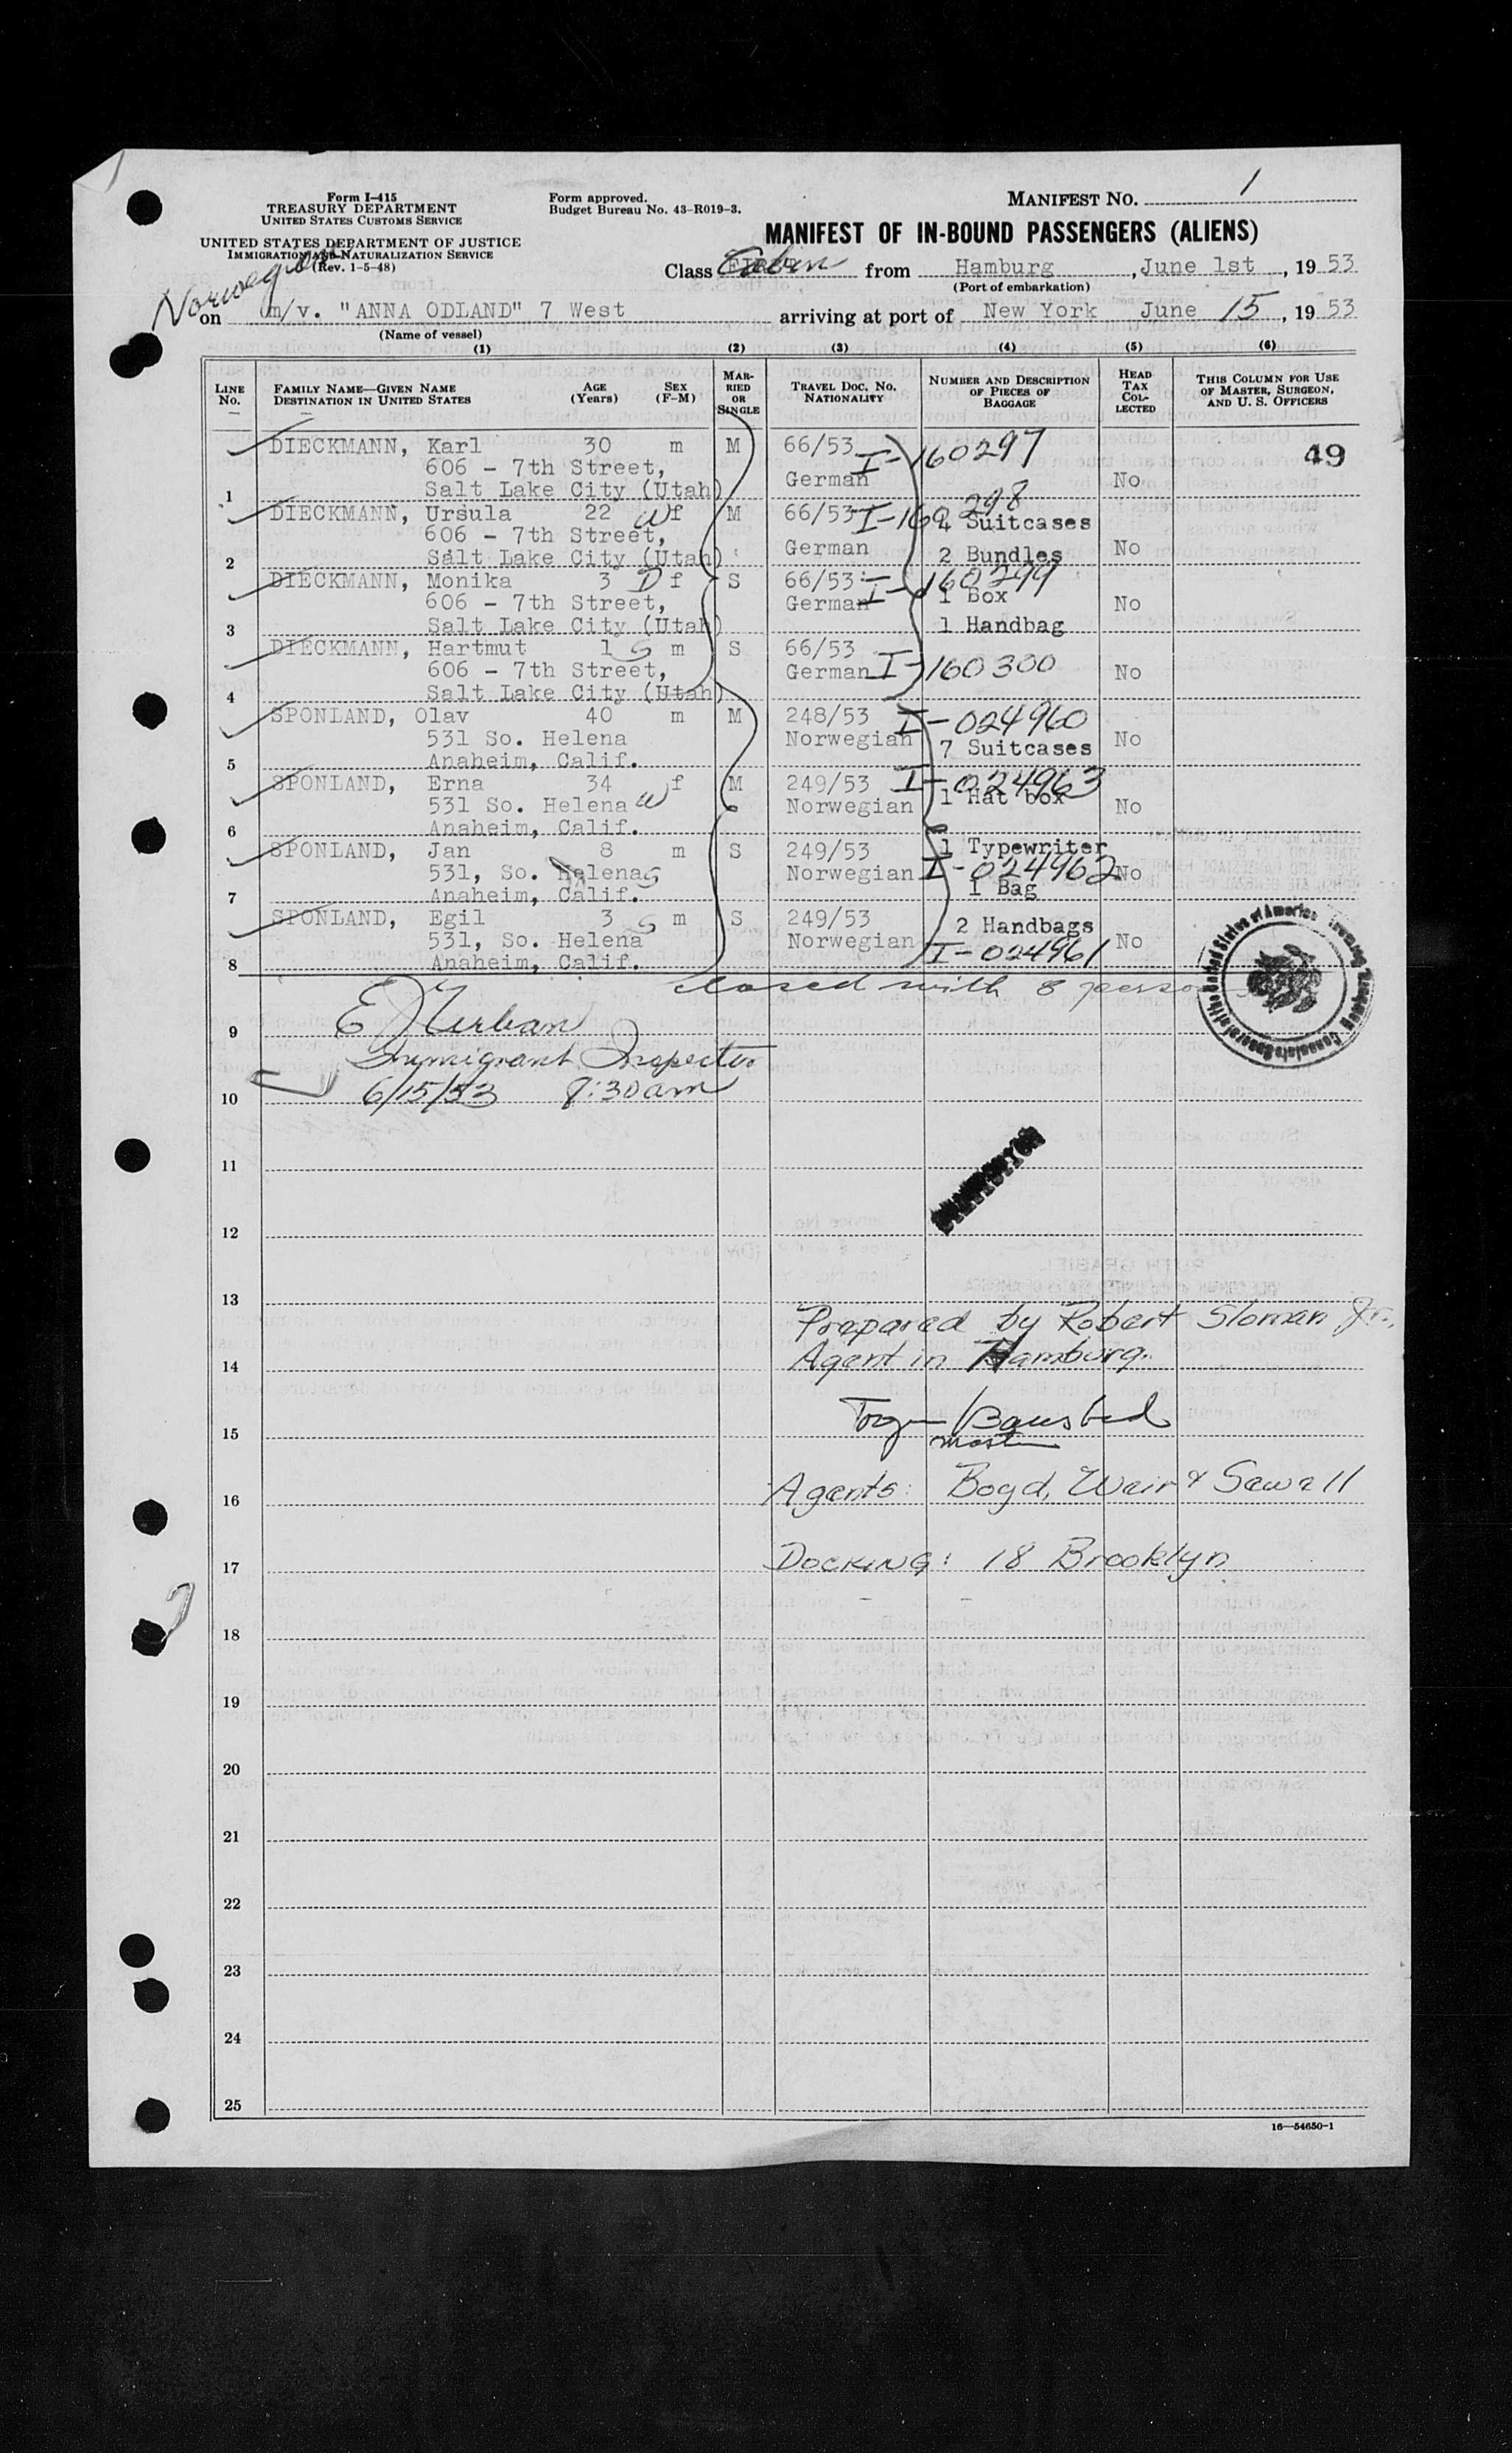 Form I-415
TREASURY DEPARTMENT
UNITED STATES CUSTOMS SERVICE
UNITED STATES DEPARTMENT OF JUSTICE
IMMIGRATION AND NATURALIZATION SERVICE
(Rev. 1-5-48)
Form approved.
Budget Bureau No. 43-R019-3.
MANIFEST NO. 1
MANIFEST OF IN-BOUND PASSENGERS (ALIENS)
Class Cabin from Hamburg, June 1st, 1953
(Port of embarkation)
Norwegian
on m/v. "ANNA ODLAND" 7 West arriving at port of New York June 15, 1953
(Name of vessel)
(1) (2) (3) (4) (5) (6)
LINE No. FAMILY NAME—GIVEN NAME DESTINATION IN UNITED STATES AGE (Years) SEX (F-M) MARRIED OR SINGLE TRAVEL DOC. NO. NATIONALITY NUMBER AND DESCRIPTION OF PIECES OF BAGGAGE HEAD TAX COLLECTED THIS COLUMN FOR USE OF MASTER, SURGEON, AND U. S. OFFICERS
DIECKMANN, Karl 30 m M 66/53 I-160297 49
606 - 7th Street, German No
1 Salt Lake City (Utah)
DIECKMANN, Ursula 22 W f M 66/53 I-160298 4 Suitcases
606 - 7th Street, German 2 Bundles No
2 Salt Lake City (Utah)
DIECKMANN, Monika 3 D f S 66/53 I-160299
606 - 7th Street, German 1 Box No
3 Salt Lake City (Utah) 1 Handbag
DIECKMANN, Hartmut 1 S m S 66/53
606 - 7th Street, German I-160300 No
4 Salt Lake City (Utah)
SPONLAND, Olav 40 m M 248/53 I-024960
531 So. Helena Norwegian 7 Suitcases No
5 Anaheim, Calif.
SPONLAND, Erna 34 f M 249/53 I-024963
531 So. Helena W Norwegian 1 Hat box No
6 Anaheim, Calif.
SPONLAND, Jan 8 m S 249/53 1 Typewriter
531, So. Helena S Norwegian I-024962 No
7 Anaheim, Calif. 1 Bag
SPONLAND, Egil 3 S m S 249/53 2 Handbags
531, So. Helena Norwegian I-024961 No
8 Anaheim, Calif.
closed with 8 persons
9 E J Urban
Immigrant Inspector
10 6/15/53 8:30am
11
12
13
Prepared by Robert Sloman Jr.,
14 Agent in Hamburg.
15
master
16 Agents: Boyd, Weir & Sewall
17 DOCKING: 18 Brooklyn
18
19
20
21
22
23
24
25
16—54650-1